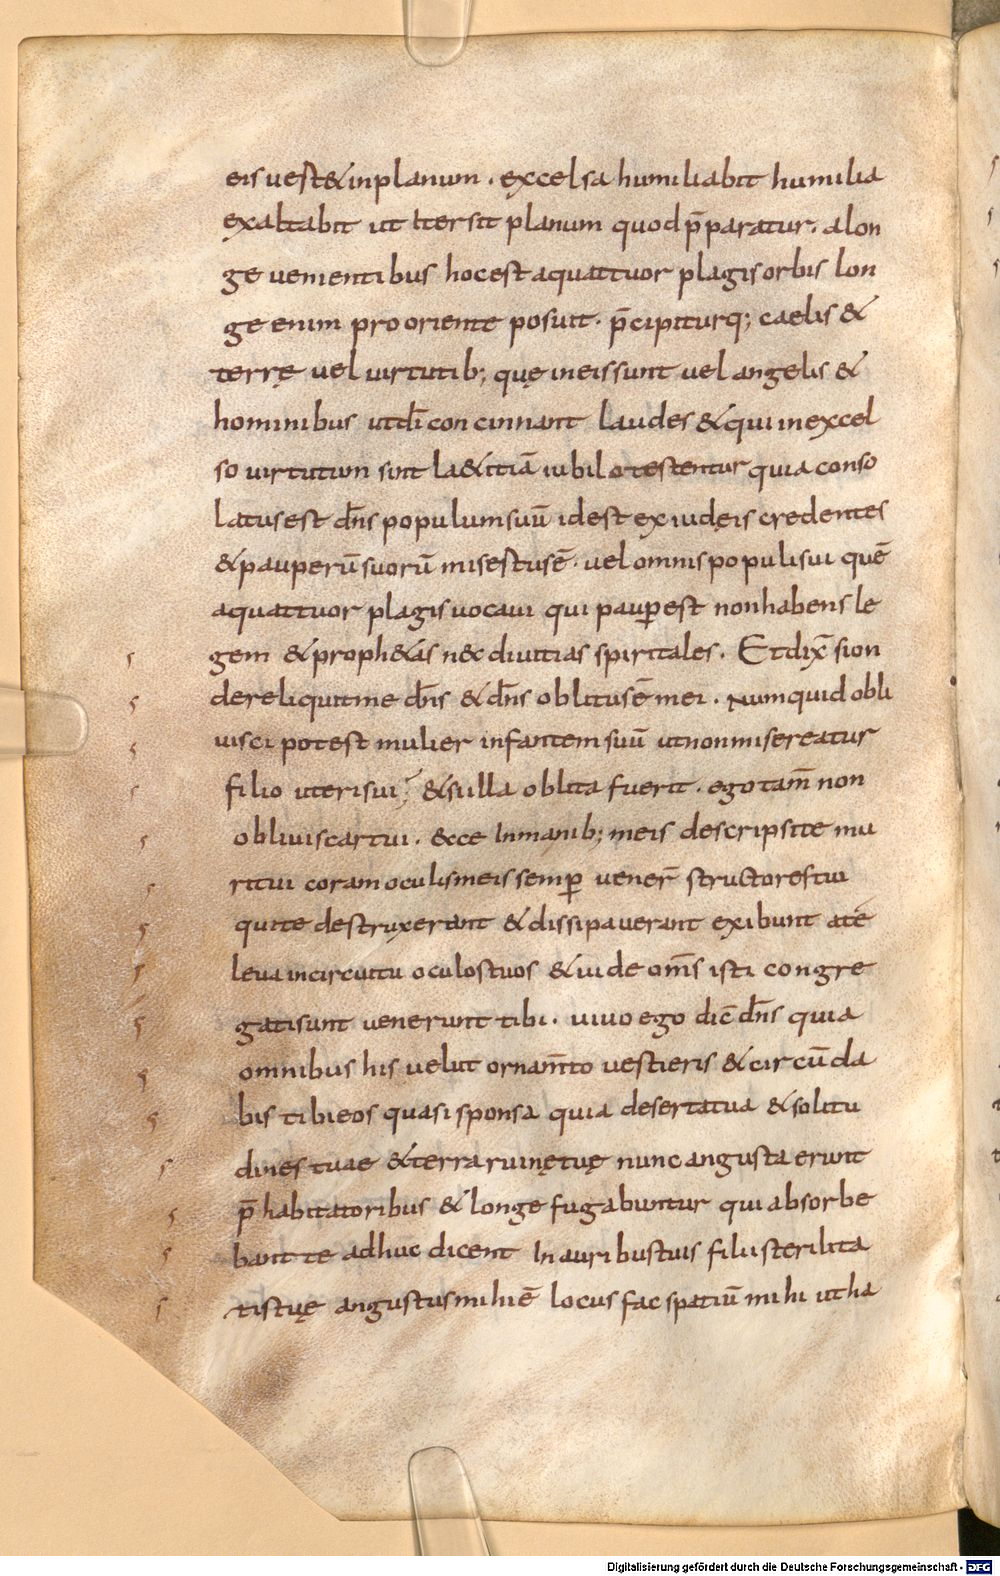 eis uest& inplanum . excelsa humiliabit humilia
exaltabit ut iter sit planum quod p̄paratur. a lon
ge uenientibus hoc est aquattuor plagis orbis lon
ge enim pro oriente posuit . p̄cipiturq; caelis &
terrę uel uirtutib; quę ineis sunt uel angelis &
hominibus ut dī concinnant laudes & qui inexcel
so uirtutum sint la&itiā iubilo testentur quia conso
latus est dn̄s populum suū idest ex iudęis credentes
& pauperū suorū misertus ē . uel omnis populi sui quē
aquattuor plagis uocaui qui paup̱ est non habens le
gem & proph&as nec diuitias spiritales . Et dix̄ sion
dereliquit me dn̄s & dn̄s oblitus ē mei . Numquid obli
uisci potest mulier infantem suū ut non misereatur
filio uteri sui? & si illa oblita fuerit . ego tam̄ non
obliuiscar tui . ecce In manib; meis descripsi te mu
ri tui coram oculis meis semp̱ uener̄ structores tui
qui te destruxerant & dissipauerant exibunt a te
leua incircuitu oculos tuos & uide om̄s isti congre
gati sunt uenerunt tibi . uiuo ego dic̄ dn̄s quia
omnibus his uelut ornam̄to uestieris & circū da
bis tibi eos quasi sponsa quia deserta tua & solitu
dines tuae & terra ruinę tuę nunc angusta erunt
p̄ habitatoribus & longe fugabuntur qui absorbe
bant te adhuc dicent In auribus tuis filii sterilita
tis tuę angustus mihi ē locus fac spatiū mihi ut ha
Digitalisierung gefördert durch die Deutsche Forschungsgemeinschaft - DFG